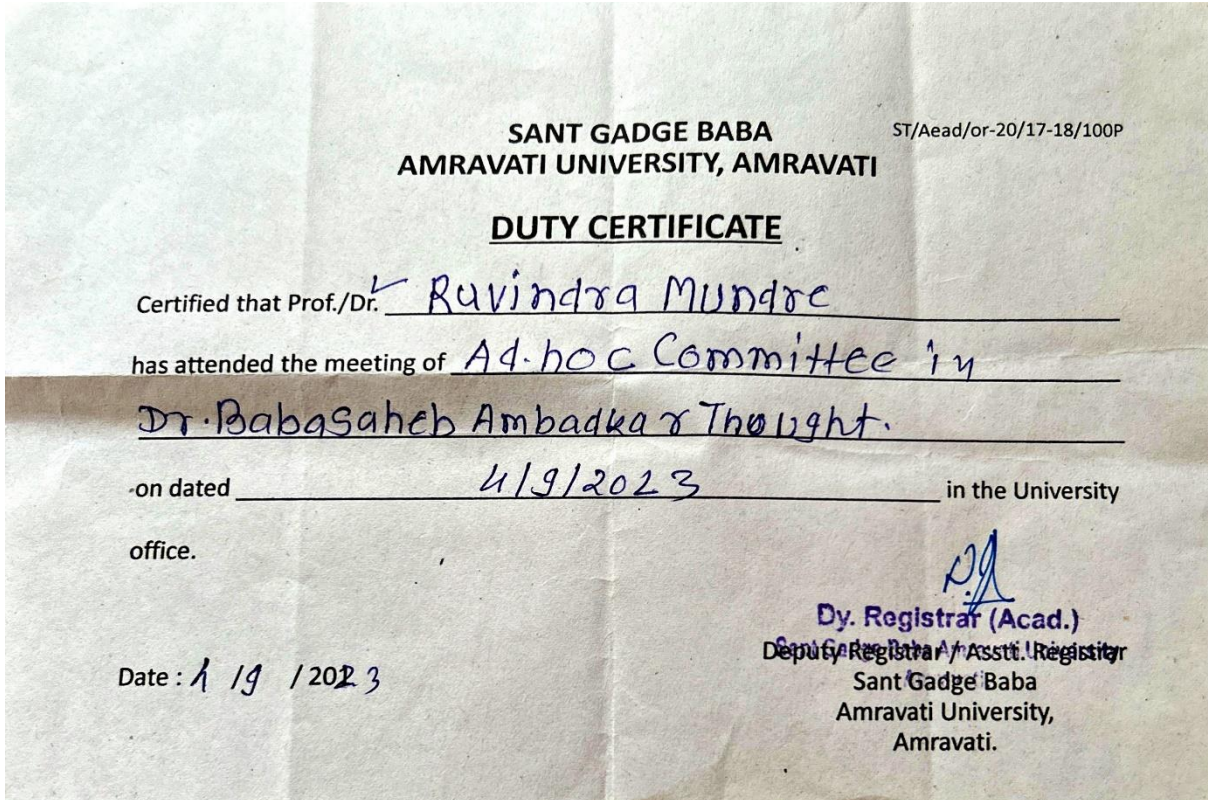 SANT GADGE BABA
AMRAVATI UNIVERSITY, AMRAVATI
ST/Aead/or-20/17-18/100P
DUTY CERTIFICATE
Certified that Prof./Dr. Ravindra Mundre
has attended the meeting of Ad-hoc Committee in
Dr. Babasaheb Ambadkar Thought.
on dated 4/9/2023 in the University
office.
Dy. Registrar (Acad.)
Deputy Registrar / Asstt. Registrar
Date : 4 /9 / 2023
Sant Gadge Baba
Amravati University,
Amravati.